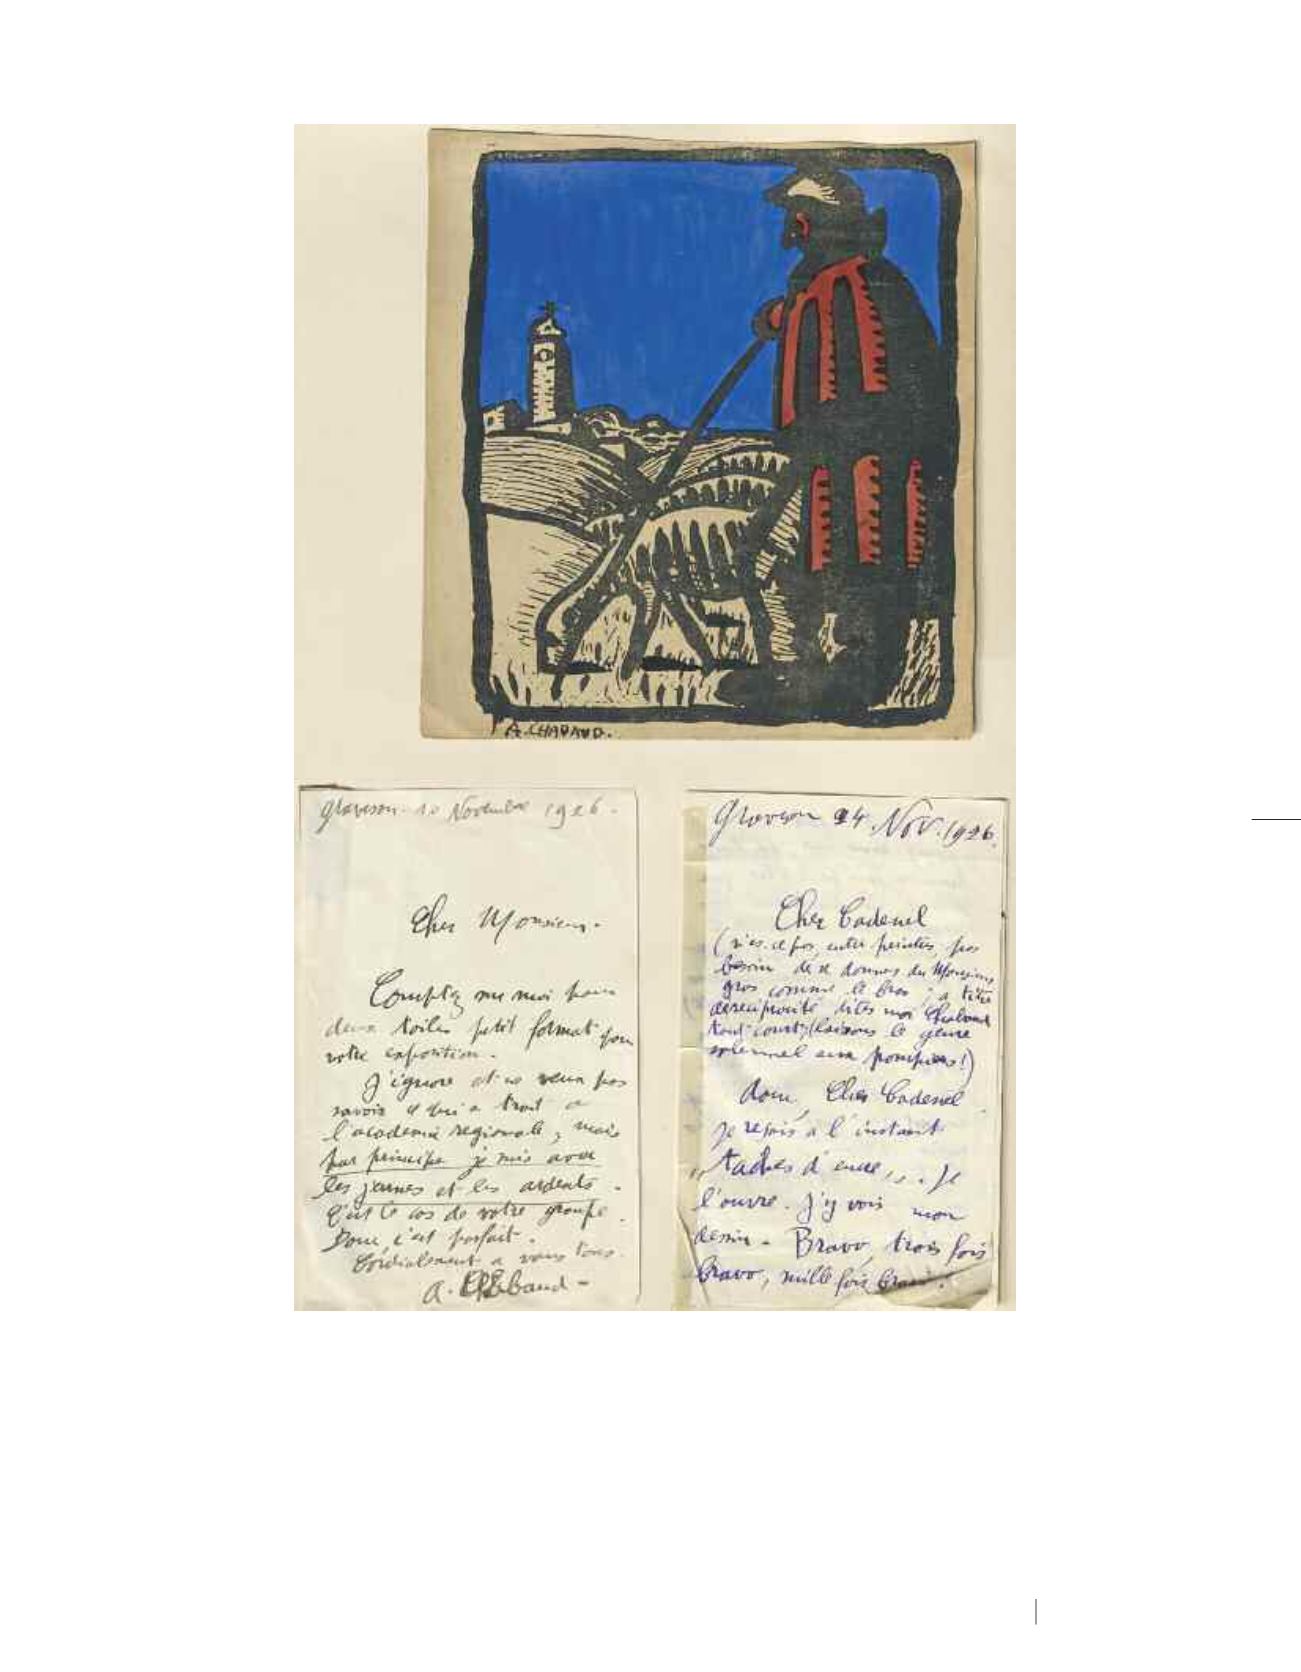 A. CHABAUD.
Graveson. 10 Novembre 1926.
Cher Monsieur.
Comptez sur moi pour
deux toiles petit format pour
votre exposition.
J'ignore et ne veux pas
savoir ce qui a trait à
l'academie regionale, mais
par principe je suis avec
les jeunes et les ardents.
C'est le cas de votre groupe.
Donc c'est parfait.
Cordialement a vous tous.
A. Chabaud -
Graveson 24 Nov. 1926.
Cher Cadenel
(n'est-ce pas, entre peintres, pas
besoin de se donner du Monsieur
gros comme le bras; a titre
de reciprocité dites moi Chabaud
tout court; laissons le genre
solennel aux pompiers!)
donc, Cher Cadenel
je reçois à l'instant
"taches d'encre". Je
l'ouvre. J'y vois mon
dessin. Bravo, trois fois
bravo, mille fois bravo!